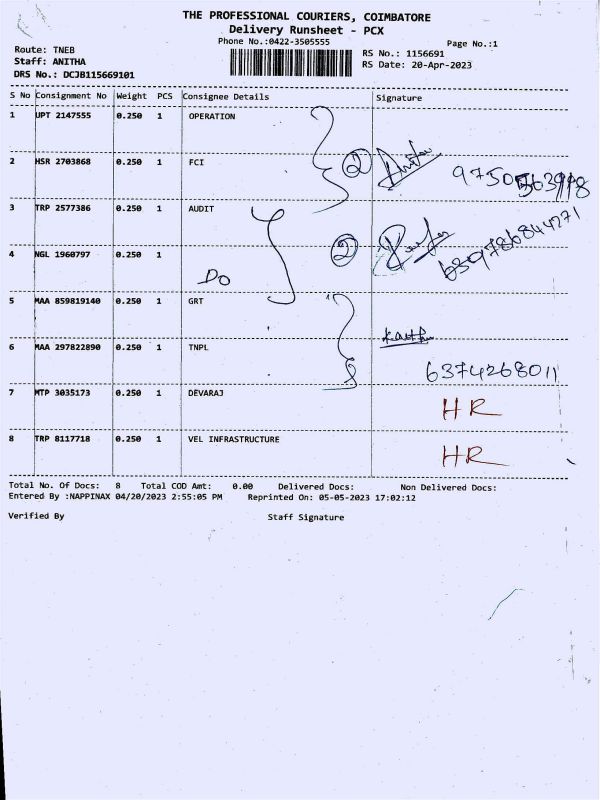 THE PROFESSIONAL COURIERS, COIMBATORE
Delivery Runsheet - PCX
Phone No.:0422-3505555
Page No.:1
Route: TNEB
RS No.: 1156691
Staff: ANITHA
RS Date: 20-Apr-2023
DRS No.: DCJB115669101
S No Consignment No Weight PCS Consignee Details Signature
1 UPT 2147555 0.250 1 OPERATION
2 HSR 2703868 0.250 1 FCI 2
3 TRP 2577386 0.250 1 AUDIT
4 NGL 1960797 0.250 1 Do 2 6397868 44271
5 MAA 859819140 0.250 1 GRT
6 MAA 297822890 0.250 1 TNPL 2 6374268011
7 MTP 3035173 0.250 1 DEVARAJ HR
8 TRP 8117718 0.250 1 VEL INFRASTRUCTURE HR
Total No. Of Docs: 8 Total COD Amt: 0.00 Delivered Docs: Non Delivered Docs:
Entered By :NAPPINAX 04/20/2023 2:55:05 PM Reprinted On: 05-05-2023 17:02:12
Verified By Staff Signature